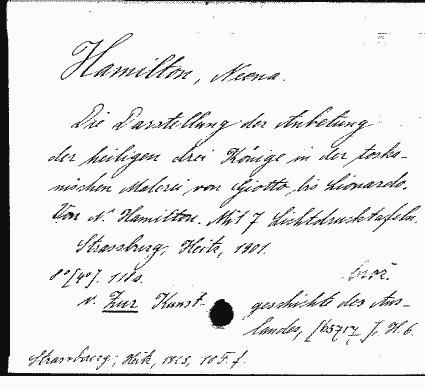 Hamilton, Neena.
Die Darstellung der Anbetung
der heiligen drei Könige in der toska-
nischen Malerei von Giotto bis Lionardo.
Von N. Hamilton. Mit 7 Lichtdrucktafeln.
Strassburg, Heitz, 1901.
8° [4°]. 118 s. broš.
v. Zur Kunst- geschichte des Aus-
landes, [65717]. H. 6.
Strassburg, Heitz,